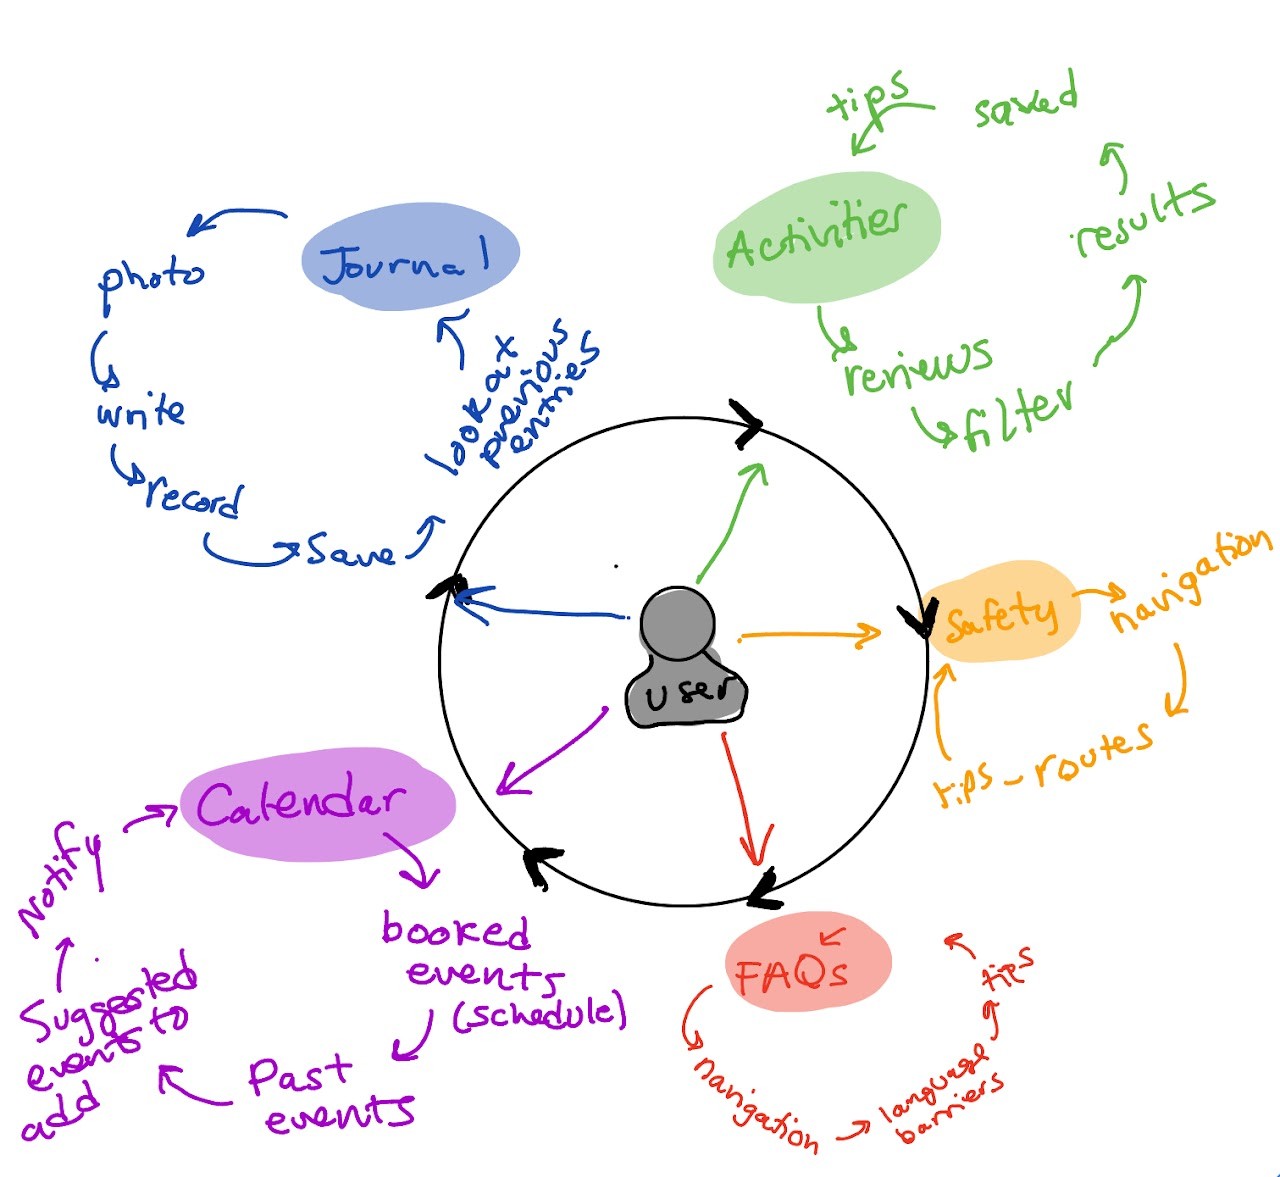 tips
saved
Activities
results
reviews
filter
Journal
photo
write
record
Save
look at
previous
entries
user
Safety
navigation
tips - routes
Calendar
booked
events
(schedule)
Past
events
Suggested
events to
add
Notify
FAQs
navigation
language
barriers
tips